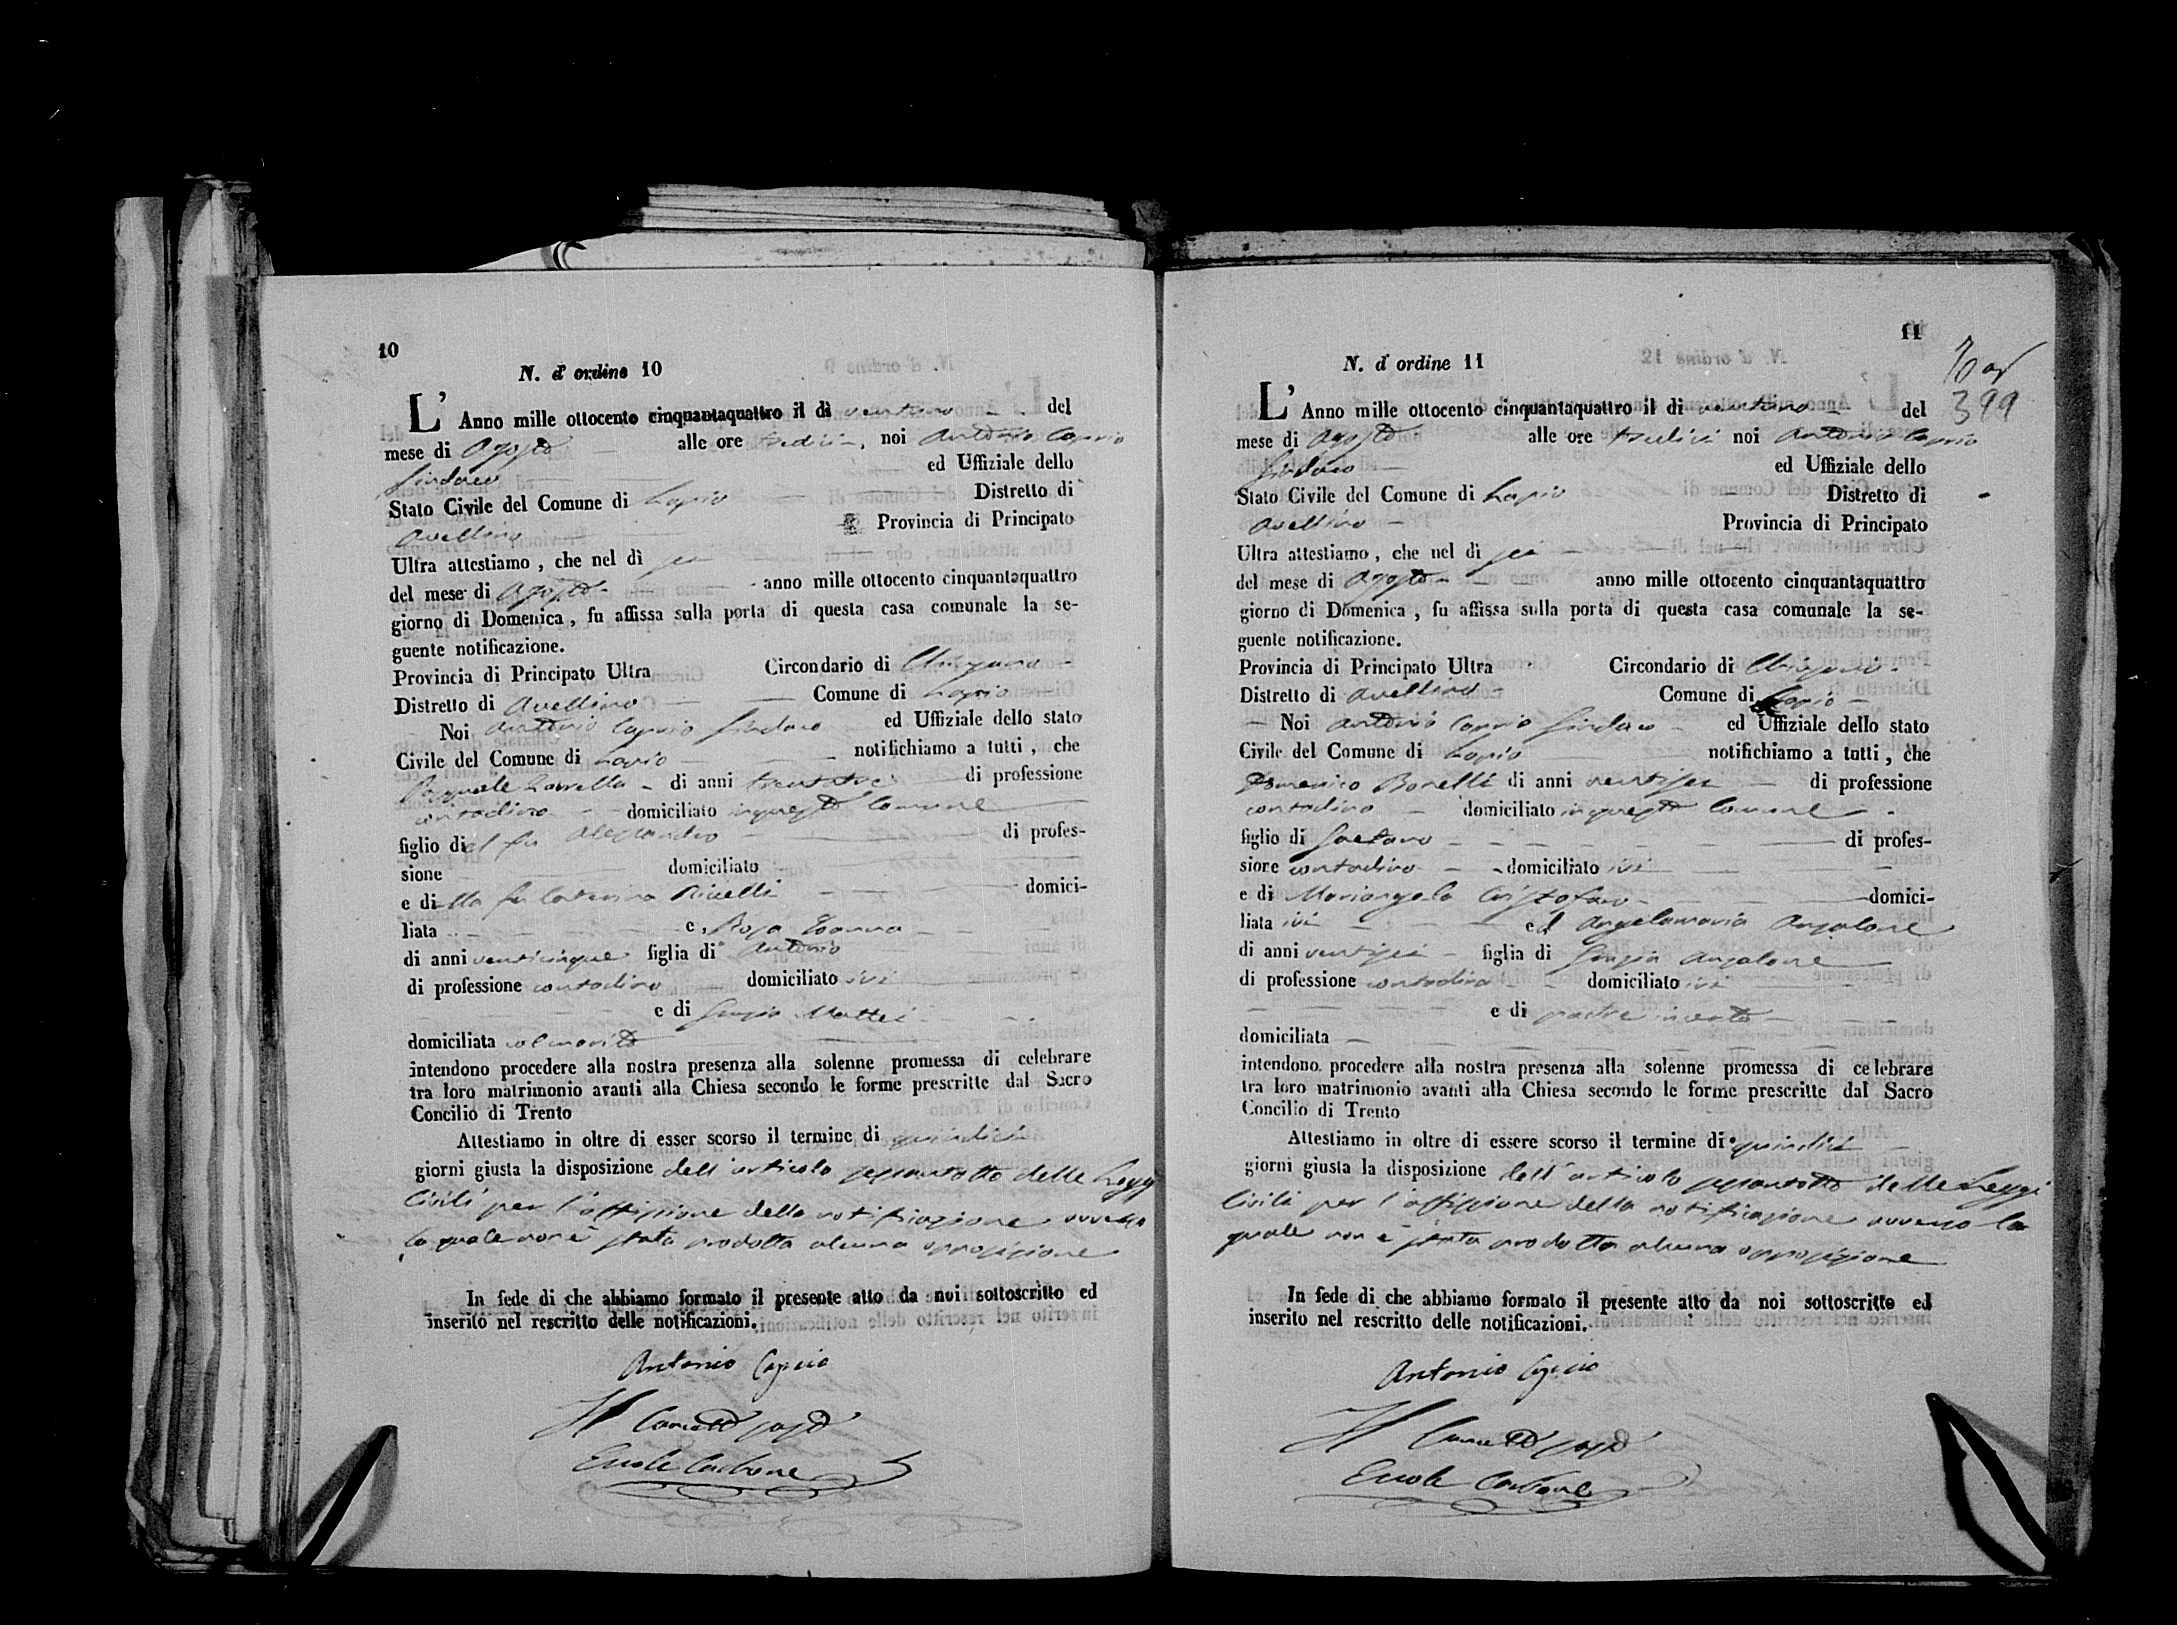 10
N. d' ordine 10
L' Anno mille ottocento cinquantaquattro il dì ventuno del
mese di Agosto alle ore tredici, noi Antonio Caprio
Sindaco ed Uffiziale dello
Stato Civile del Comune di Lapio Distretto di
Avellino Provincia di Principato
Ultra attestiamo, che nel dì sei
del mese di Agosto anno mille ottocento cinquantaquattro
giorno di Domenica, fu affissa sulla porta di questa casa comunale la se-
guente notificazione.
Provincia di Principato Ultra Circondario di
Distretto di Avellino Comune di Lapio
Noi Antonio Caprio Sindaco ed Uffiziale dello stato
Civile del Comune di Lapio notifichiamo a tutti, che
Pasquale di anni trentatre di professione
contadino domiciliato in questo Comune
figlio del fu Alessandro di profes-
sione domiciliato
e della fu Caterina domici-
liata e Rosa
di anni venticinque figlia di Antonio
di professione contadino domiciliato ivi
e di Mattei
domiciliata col marito
intendono procedere alla nostra presenza alla solenne promessa di celebrare
tra loro matrimonio avanti alla Chiesa secondo le forme prescritte dal Sacro
Concilio di Trento
Attestiamo in oltre di esser scorso il termine di quindici
giorni giusta la disposizione dell'articolo sessantotto delle Leggi
Civili per l'affissione della notificazione avverso
la quale non è stata prodotta alcuna opposizione
In fede di che abbiamo formato il presente atto da noi sottoscritto ed
inserito nel rescritto delle notificazioni.
Antonio Caprio
Il
Ercole Carbone
11
399
N. d' ordine 11
L' Anno mille ottocento cinquantaquattro il di ventuno del
mese di Agosto alle ore tredici noi Antonio Caprio
Sindaco ed Uffiziale dello
Stato Civile del Comune di Lapio Distretto di
Avellino Provincia di Principato
Ultra attestiamo, che nel dì sei
del mese di Agosto anno mille ottocento cinquantaquattro
giorno di Domenica, fu affissa sulla porta di questa casa comunale la se-
guente notificazione.
Provincia di Principato Ultra Circondario di
Distretto di Avellino Comune di Lapio
Noi Antonio Caprio Sindaco ed Uffiziale dello stato
Civile del Comune di Lapio notifichiamo a tutti, che
Domenico Borelli di anni ventisei di professione
contadino domiciliato in questo Comune
figlio di Gaetano di profes-
siore contadino domiciliato ivi
e di Mariangela Cristofaro domici-
liata ivi ed Angelamaria Anzalone
di anni ventisei figlia di Anzalone
di professione contadina domiciliato ivi
e di padre incerto
domiciliata
intendono procedere alla nostra presenza alla solenne promessa di celebrare
tra loro matrimonio avanti alla Chiesa secondo le forme prescritte dal Sacro
Concilio di Trento
Attestiamo in oltre di essere scorso il termine di quindici
giorni giusta la disposizione dell'articolo sessantotto delle Leggi
Civili per l'affissione della notificazione avverso la
quale non è stata prodotta alcuna opposizione
In fede di che abbiamo formato il presente atto da noi sottoscritto ed
inserito nel rescritto delle notificazioni.
Antonio Caprio
Il
Ercole Carbone